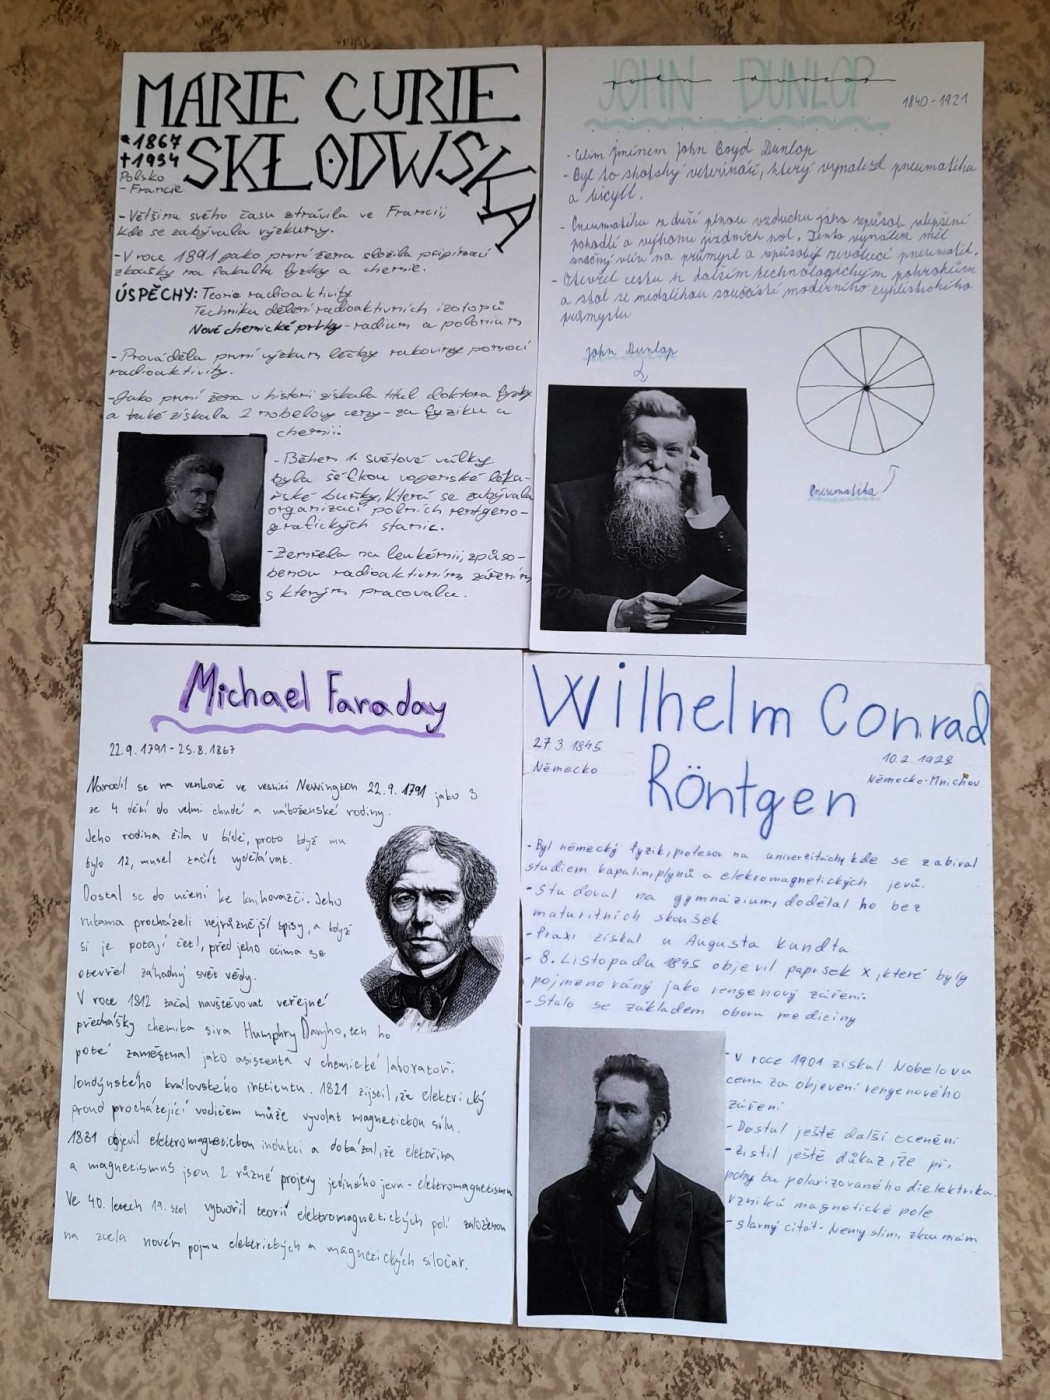 MARIE CURIE
SKŁODWSKA
*1867
†1934
Polsko
- Francie
- Většinu svého času ztrávila ve Francii,
kde se zabývala výzkumy.
- V roce 1891 jako první žena složila přijímací
zkoušky na fakultu fyziky a chemie.
ÚSPĚCHY: Teorie radioaktivity
Technika dělení radioaktivních izotopů
Nové chemické prvky - radium a polonium
- Prováděla první výzkum léčby rakoviny pomocí
radioaktivity.
- Jako první žena v historii získala titul doktora fyziky
a také získala 2 nobelovy ceny - za fyziku a
chemii.
- Během 1. světové války
byla šéfkou vojenské léka-
řské buňky, která se zabývala
organizací polních rentgeno-
grafických stanic.
- Zemřela na leukémii, způso-
benou radioaktivním zářením,
s kterým pracovala.
JOHN DUNLOP
john dunlop
1840 - 1921
- Celým jménem John Boyd Dunlop
- Byl to skotský veterinář, který vynalezl pneumatiku
a bicykl.
- Pneumatiku z duší plnou vzduchu jako způsob vylepšení
pohodlí a výkonu jízdních kol. Tento vynález měl
značný vliv na průmysl a způsobil revoluci pneumatik.
- Otevřel cestu k dalším technologickým pokrokům
a stal se nedílnou součástí moderního cyklistického
průmyslu
John Dunlop
pneumatika
Michael Faraday
22.9.1791 - 25.8.1867
Narodil se na venkově ve vesnici Newington 22.9.1791 jako 3
ze 4 dětí do velmi chudé a náboženské rodiny.
Jeho rodina žila v bídě, proto když mu
bylo 12, musel začít vydělávat.
Dostal se do učení ke knihovazči. Jeho
rukama procházeli nejrůznější spisy, a když
si je potají četl, před jeho očima se
otevřel záhadný svět vědy.
V roce 1812 začal navštěvovat veřejné
přednášky chemika sira Humphry Davyho, ten ho
poté zaměstnal jako asistenta v chemické laboratoři
londýnského královského institutu. 1821 zjistil, že elektrický
proud procházející vodičem může vyvolat magnetickou sílu.
1831 objevil elektromagnetickou indukci a dokázal, že elektřina
a magnetismus jsou 2 různé projevy jediného jevu - elektromagnetismu
Ve 40. letech 19. stol vytvořil teorii elektromagnetických polí založenou
na zcela novém pojmu elektrických a magnetických siločar.
Wilhelm Conrad
Röntgen
27.3.1845
Německo
10.2.1923
Německo-Mnichov
- Byl německý fyzik, profesor na univerzitách, kde se zabíval
studiem kapalin, plynů a elekromagnetických jevů.
- Studoval na gymnázium, dodělal ho bez
maturitních skoušek
- Praxi získal u Augusta Kundta
- 8. Listopadu 1895 objevil paprsek X, které byly
pojmenovaný jako rengenový záření.
- Stalo se základem oboru medicíny
- V roce 1901 získal Nobelovu
cenu za objevení rengenového
záření
- Dostal ještě další ocenění
- Zistil ještě důkaz, že při
pohybu polarizovaného dielektrika
vzniká magnetické pole
- slavný citát - Nemyslím, zkoumám